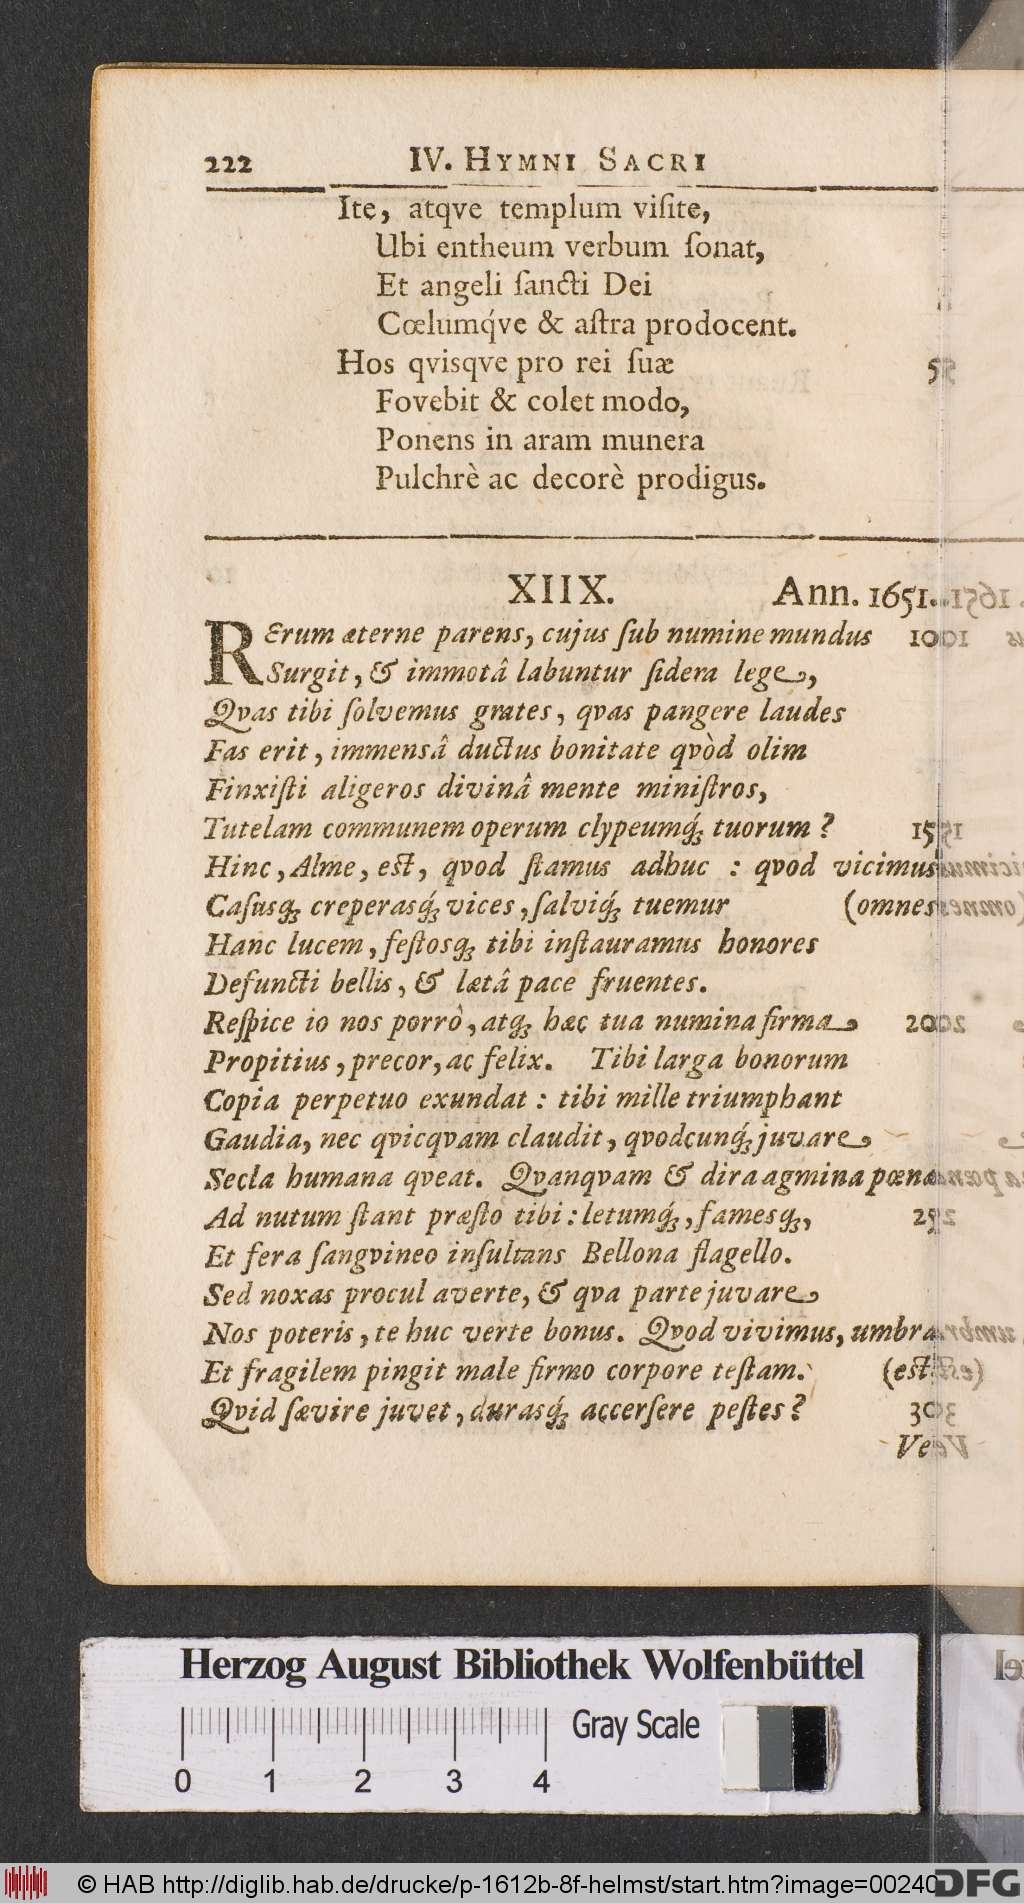 222 IV. HYMNI SACRI
Ite, atqve templum viſite,
Ubi entheum verbum ſonat,
Et angeli ſancti Dei
Cœlumq́ve & aſtra prodocent.
Hos qvisqve pro rei ſuæ 55
Fovebit & colet modo,
Ponens in aram munera
Pulchrè ac decorè prodigus.
XIIX. Ann. 1651.
RErum æterne parens, cujus ſub numine mundus
Surgit, & immotâ labuntur ſidera lege,
Qvas tibi ſolvemus grates, qvas pangere laudes
Fas erit, immensâ ductus bonitate qvòd olim
Finxiſti aligeros divinâ mente miniſtros,
Tutelam communem operum clypeumq́; tuorum?
Hinc, Alme, est, qvod ſtamus adhuc : qvod vicimus
Caſusq; creperasq́; vices, ſalviq́; tuemur (omnes
Hanc lucem, feſtosq; tibi inſtauramus honores
Defuncti bellis, & lætâ pace fruentes.
Reſpice io nos porrò, atq; hæc tua numina firma
Propitius, precor, ac felix. Tibi larga bonorum
Copia perpetuo exundat : tibi mille triumphant
Gaudia, nec qvicqvam claudit, qvodcunq́; juvare
Secla humana qveat. Qvanqvam & dira agmina pœnæ
Ad nutum ſtant præſto tibi : letumq́;, famesq;,
Et fera ſangvineo inſultans Bellona flagello.
Sed noxas procul averte, & qva parte juvare
Nos poteris, te huc verte bonus. Qvod vivimus, umbra
Et fragilem pingit male firmo corpore teſtam. (est
Qvid ſævire juvet, durasq́; accerſere peſtes?
Ve
Herzog August Bibliothek Wolfenbüttel
Gray Scale
0 1 2 3 4
© HAB http://diglib.hab.de/drucke/p-1612b-8f-helmst/start.htm?image=00240
DFG